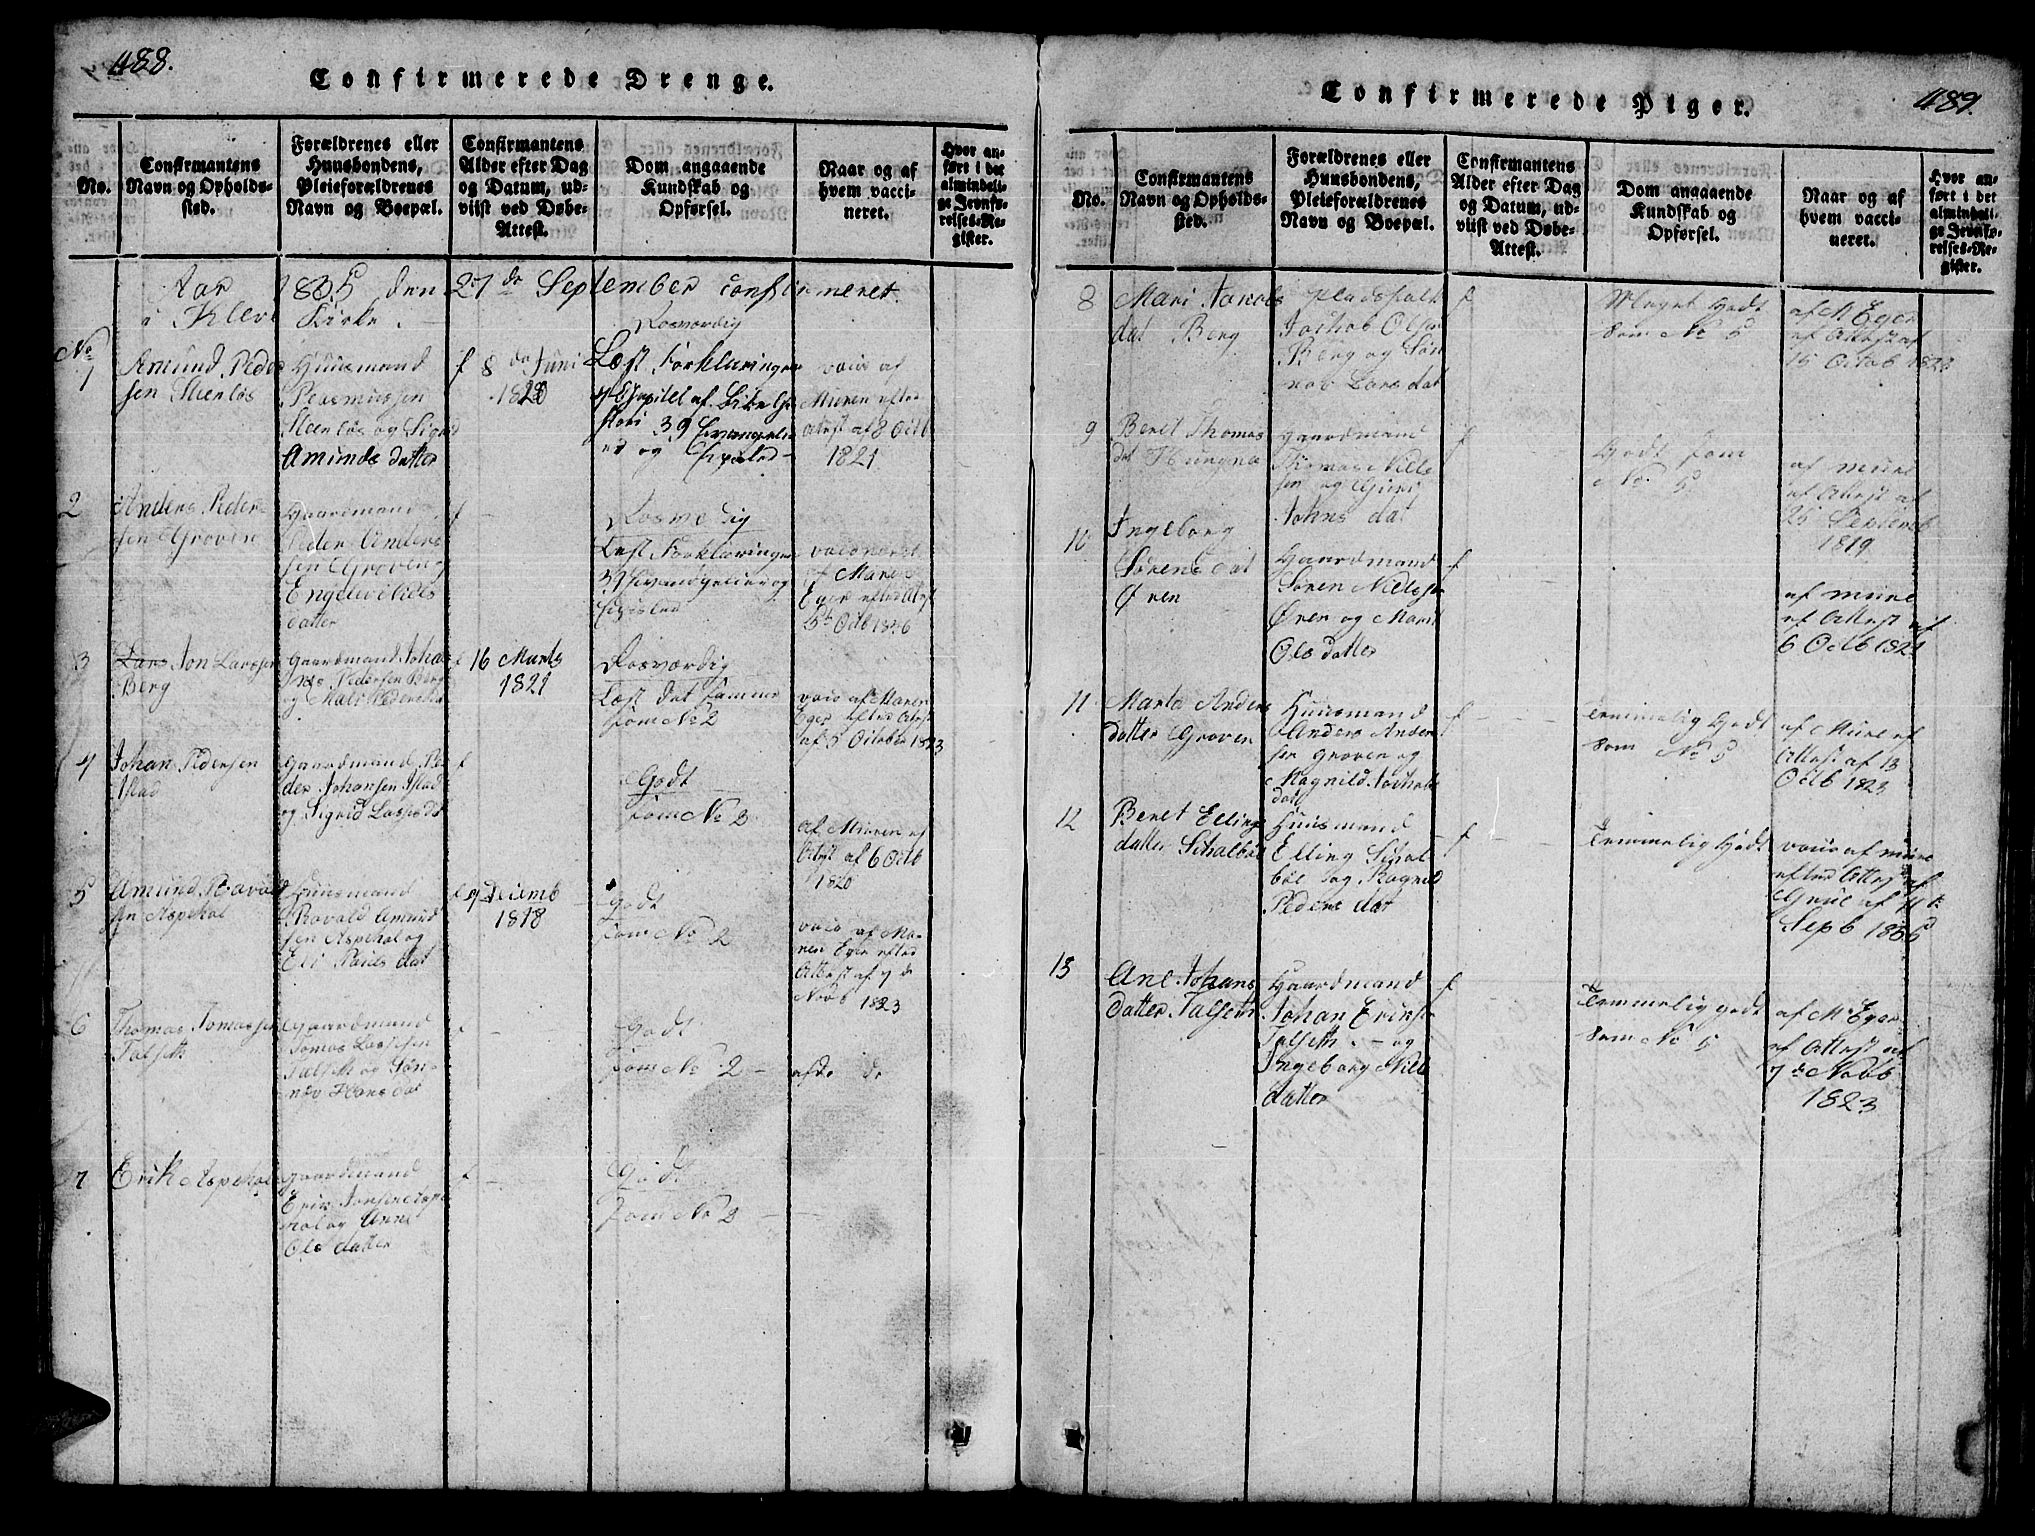 488.
Confirmerede Drenge.
No.
Confirmantens
Navn og Opholds-
sted.
Forældrenes eller
Huusbondens,
Pleieforældrenes
Navn og Boepæl.
Confirmantens
Alder efter Dag
og Datum, ud-
viist ved Døbe-
Attest.
Dom angaaende
Kundskab og
Opførsel.
Naar og af
hvem vacci-
neret.
Hvor an-
ført i det
almindeli-
ge Jevnfø-
relses-Re-
gister.
Aar 1835 den 27de September confirmeret
i Kleve Kirke.
No
1
Amund Peder
sen Steenløs
Huusmand
Peder Rasmussen
Steenløs og Sigrid
Amunds datter
f 8 da Juni
1820
Rosværdig
Læst Forklaringen
39 Evangelier
og Epistler
vacis af
Muren efter
Attest af 8 Octb
1821
2
Anders Peder-
sen Groven
Gaardmand
Peder Anders
sen Groven og
Engelev Niels
datter
f -
Rosværdig
Læst Forklaringen
39 Evangelier og
Epistler
vacineret
af Maren
Eger efter Attest
1826
3
Lars Jon Larssen
Berg
Gaardmand Johan
nes Pedersen Berg
og Mali Peders dat
f 16 Marts
1821
Rosværdig
Læst det samme
som No 2
vacis af Maren
Eger efter Attest
af 5 October 1823
4
Johan Pedersen
Istad
Gaardmand Pe
der Johansen Istad
og Sigrid Lasses dat
f
Godt
som No 2
af Muren ef
Attest af 6 Octb
1820
5
Amund Ravald
sen Aspehol
Huusmand
Ravald Amund
sen Aspehol og
Eli Nils dat
f 9 Decemb
1818
Godt
som No 2
vacis af Ma-
ren Eger efter
Attest af 7 de
Novb 1823
6
Thomas Tomassen
Talseth
Gaardmand
Tomas Lassesen
Talseth og Søn-
nev Hans dat
f -
Godt
som No 2 -
af do do
7
Erik Aspehol
Gaardmand
Erik Jonsen Aspe
hol og Anne
Ols datter
f -
Godt
som No 2
489.
Confirmerede Piger.
No.
Confirmantens
Navn og Opholds-
sted.
Forældrenes eller
Huusbondens,
Pleieforældrenes
Navn og Boepæl.
Confirmantens
Alder efter Dag
og Datum, ud-
viist ved Døbe-
Attest.
Dom angaaende
Kundskab og
Opførsel.
Naar og af
hvem vacci-
neret.
Hvor an-
ført i det
almindeli-
ge Jevnfø-
relses-Re-
gister.
8
Mari Jacobs
dat Berg
Jachob Olsen
Berg og Søn
nev Lars dat
f
Meget Godt
som No 5
af M Eger
ef Attest af
15 Octob 1823
9
Beret Thomas
dat
Gaardmand
Thomas Niels
sen og Guri
Johns dat
f
Godt som
No 5
af Mure
ef Attest af
25 Septemb
1819
10
Ingeborg
Sørens dat
Øren
Gaardmand
Søren Nielssen
Øren og Marit
Ols datter
f
af Mure
ef Attest af
6 Octb 1821
11
Marta Anders
datter Groven
Huusmand
Anders Ander
sen Groven og
Magnild Jachobs
dat
f
Temmelig Godt
som No 5
af Mure ef
Attest af 13
Octb 1823
12
Beret Ellings
datter Schalbøl
Huusmand
Elling Schal
bøl og Ragnild
Peders dat
f
Temmelig Godt
vacis af Mure
efter Attest af
Grüe af 11 de
Septb 1835
13
Ane Johans
datter Talseth
Gaardmand
Johan Erikse
Talseth - og
Ingeborg Niels
datter
f
Temmelig godt
som No 5
af M Eger
ef Attest af
7 de Novb
1823